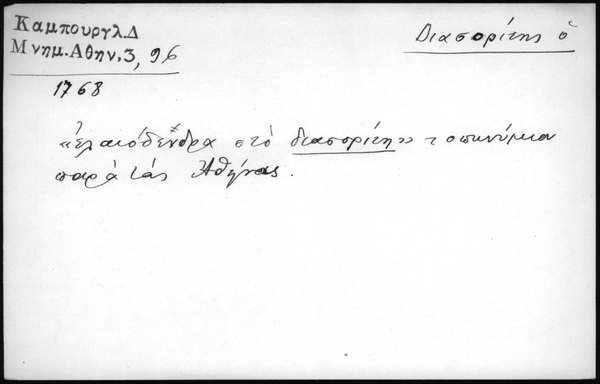 Καμπουργλ.Δ
Μνημ.Αθην,3, 96
1768
Διασορίτης ὁ
«ἐλαιόδενδρα στὸ διασορίτη» τοπωνύμια
παρὰ τὰς Ἀθήνας.